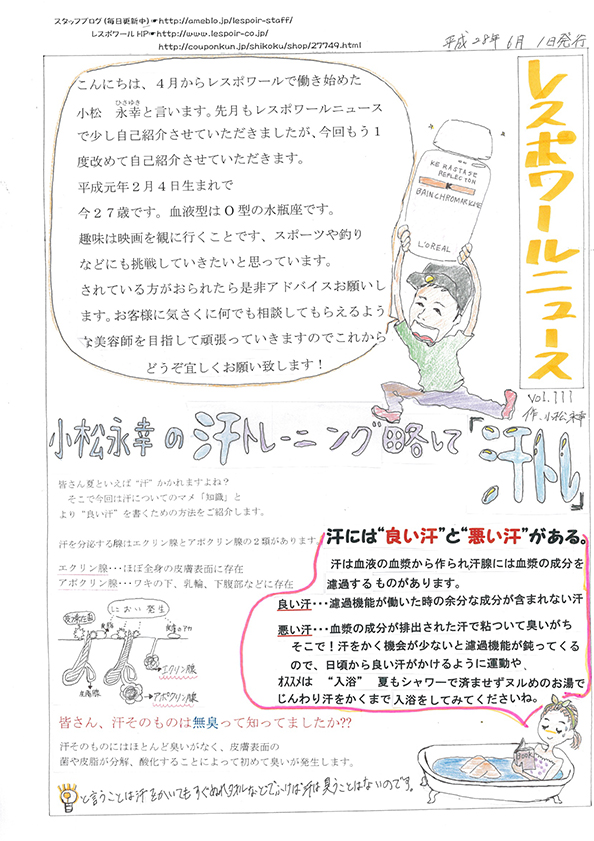 スタッフブログ(毎日更新中)☛http://ameblo.jp/lespoir-staff/
レスポワールHP☛http://www.lespoir-co.jp/
http://couponkun.jp/shikoku/shop/27749.html
平成28年6月1日発行
レスポワールニュース
Vol.111
作.小松永幸
こんにちは、4月からレスポワールで働き始めた
ひさゆき
小松 永幸と言います。先月もレスポワールニュース
で少し自己紹介させていただきましたが、今回もう1
度改めて自己紹介させていただきます。
平成元年2月4日生まれで
今27歳です。血液型はO型の水瓶座です。
趣味は映画を観に行くことです、スポーツや釣り
などにも挑戦していきたいと思っています。
されている方がおられたら是非アドバイスお願いし
ます。お客様に気さくに何でも相談してもらえるよう
な美容師を目指して頑張っていきますのでこれから
どうぞ宜しくお願い致します!
KERASTASE
REFLECTION
K
BAIN CHROMATIQUE
L'OREAL
小松永幸の汗トレーニング略して「汗トレ」
皆さん夏といえば“汗”かかれますよね?
そこで今回は汗についてのマメ「知識」と
より“良い汗”を書くための方法をご紹介します。
汗を分泌する腺はエクリン腺とアポクリン腺の2類があります。
エクリン腺・・・ほぼ全身の皮膚表面に存在
アポクリン腺・・・ワキの下、乳輪、下腹部などに存在
におい発生
エクリン腺
皮脂腺
アポクリン腺
汗には“良い汗”と“悪い汗”がある。
汗は血液の血漿から作られ汗腺には血漿の成分を
濾過するものがあります。
良い汗・・・濾過機能が働いた時の余分な成分が含まれない汗
悪い汗・・・血漿の成分が排出された汗で粘ついて臭いがち
そこで!汗をかく機会が少ないと濾過機能が鈍ってくる
ので、日頃から良い汗がかけるように運動や、
オススメは “入浴” 夏もシャワーで済ませずヌルめのお湯で
じんわり汗をかくまで入浴をしてみてくださいね。
Book
皆さん、汗そのものは無臭って知ってましたか??
汗そのものにはほとんど臭いがなく、皮膚表面の
菌や皮脂が分解、酸化することによって初めて臭いが発生します。
と言うことは汗をかいてもすぐぬれタオルなどでふけば汗は臭うことはないのです。